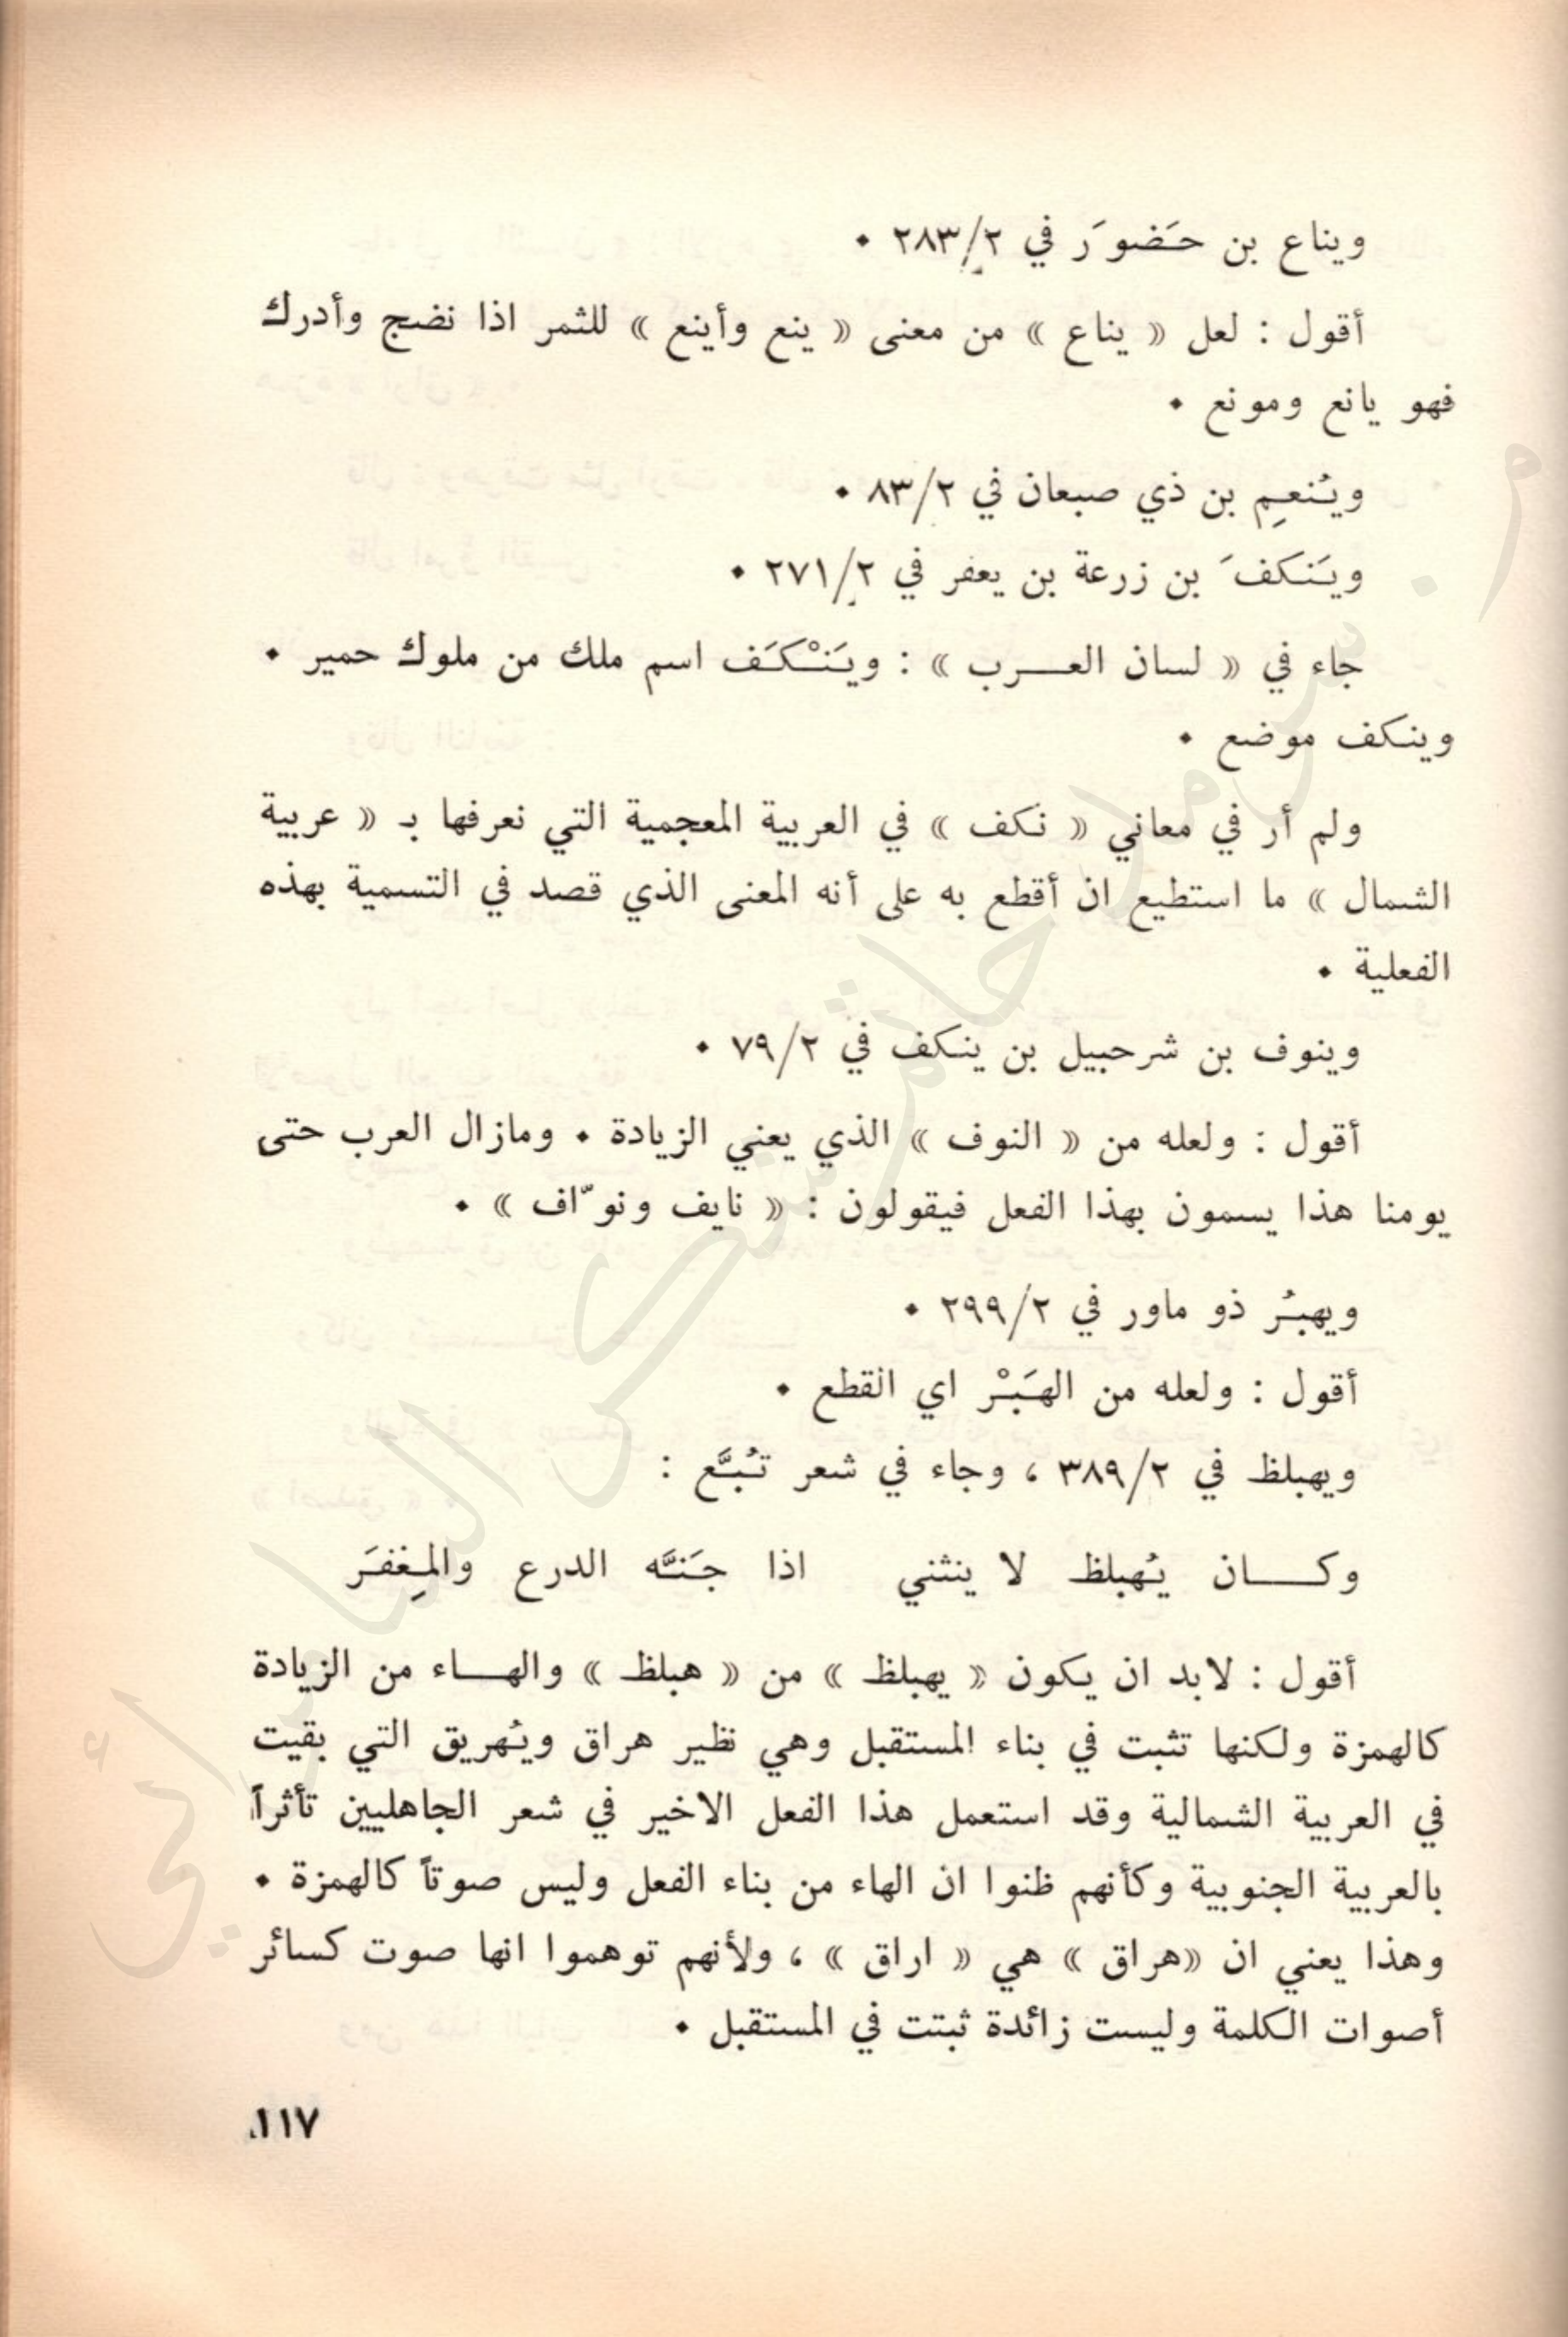 ويناع بن حَضوَر في ٢٨٣/٢ ٠
أقول : لعل « يناع » من معنى « ينع وأينع » للثمر اذا نضج وأدرك
فهو يانع ومونع ٠
ويُنعِم بن ذي صبعان في ٨٣/٢ ٠
ويَنكفَ بن زرعة بن يعفر في ٢٧١/٢ ٠
جاء في « لسان العـــرب » : ويَنْكَف اسم ملك من ملوك حمير ٠
وينكف موضع ٠
ولم أر في معاني « نكف » في العربية المعجمية التي نعرفها بـ « عربية
الشمال » ما استطيع ان أقطع به على أنه المعنى الذي قصد في التسمية بهذه
الفعلية ٠
وينوف بن شرحبيل بن ينكف في ٧٩/٢ ٠
أقول : ولعله من « النوف » الذي يعني الزيادة ٠ ومازال العرب حتى
يومنا هذا يسمون بهذا الفعل فيقولون : « نايف ونوّاف » ٠
ويهبُر ذو ماور في ٢٩٩/٢ ٠
أقول : ولعله من الهَبْر اي القطع ٠
ويهبلظ في ٣٨٩/٢ ، وجاء في شعر تُبَّع :
وكـــان يُهبلظ لا ينثني اذا جَنَّه الدرع والمِغفَر
أقول : لابد ان يكون « يهبلظ » من « هبلظ » والهـــاء من الزيادة
كالهمزة ولكنها تثبت في بناء المستقبل وهي نظير هراق ويُهريق التي بقيت
في العربية الشمالية وقد استعمل هذا الفعل الاخير في شعر الجاهليين تأثراً
بالعربية الجنوبية وكأنهم ظنوا ان الهاء من بناء الفعل وليس صوتاً كالهمزة ٠
وهذا يعني ان «هراق » هي « اراق » ، ولأنهم توهموا انها صوت كسائر
أصوات الكلمة وليست زائدة ثبتت في المستقبل ٠
١١٧